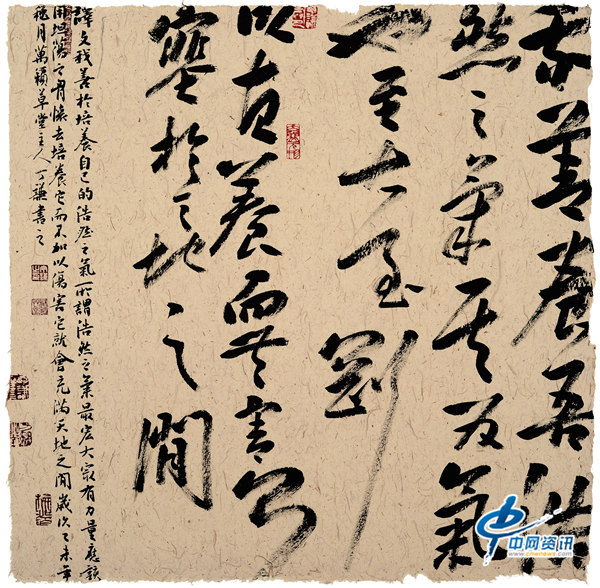 我善養吾浩
然之氣其为氣
也至大至剛
以直養而無害则
塞於天地之間
譯文我善於培養自己的浩然之氣所謂浩然之氣最宏大最有力量應該
用坦蕩之胸懷去培養它而不加以傷害它就會充滿天地之間歲次乙未年
月萬籟草堂主人丁謙書之
中网资讯
www.cnwnews.com